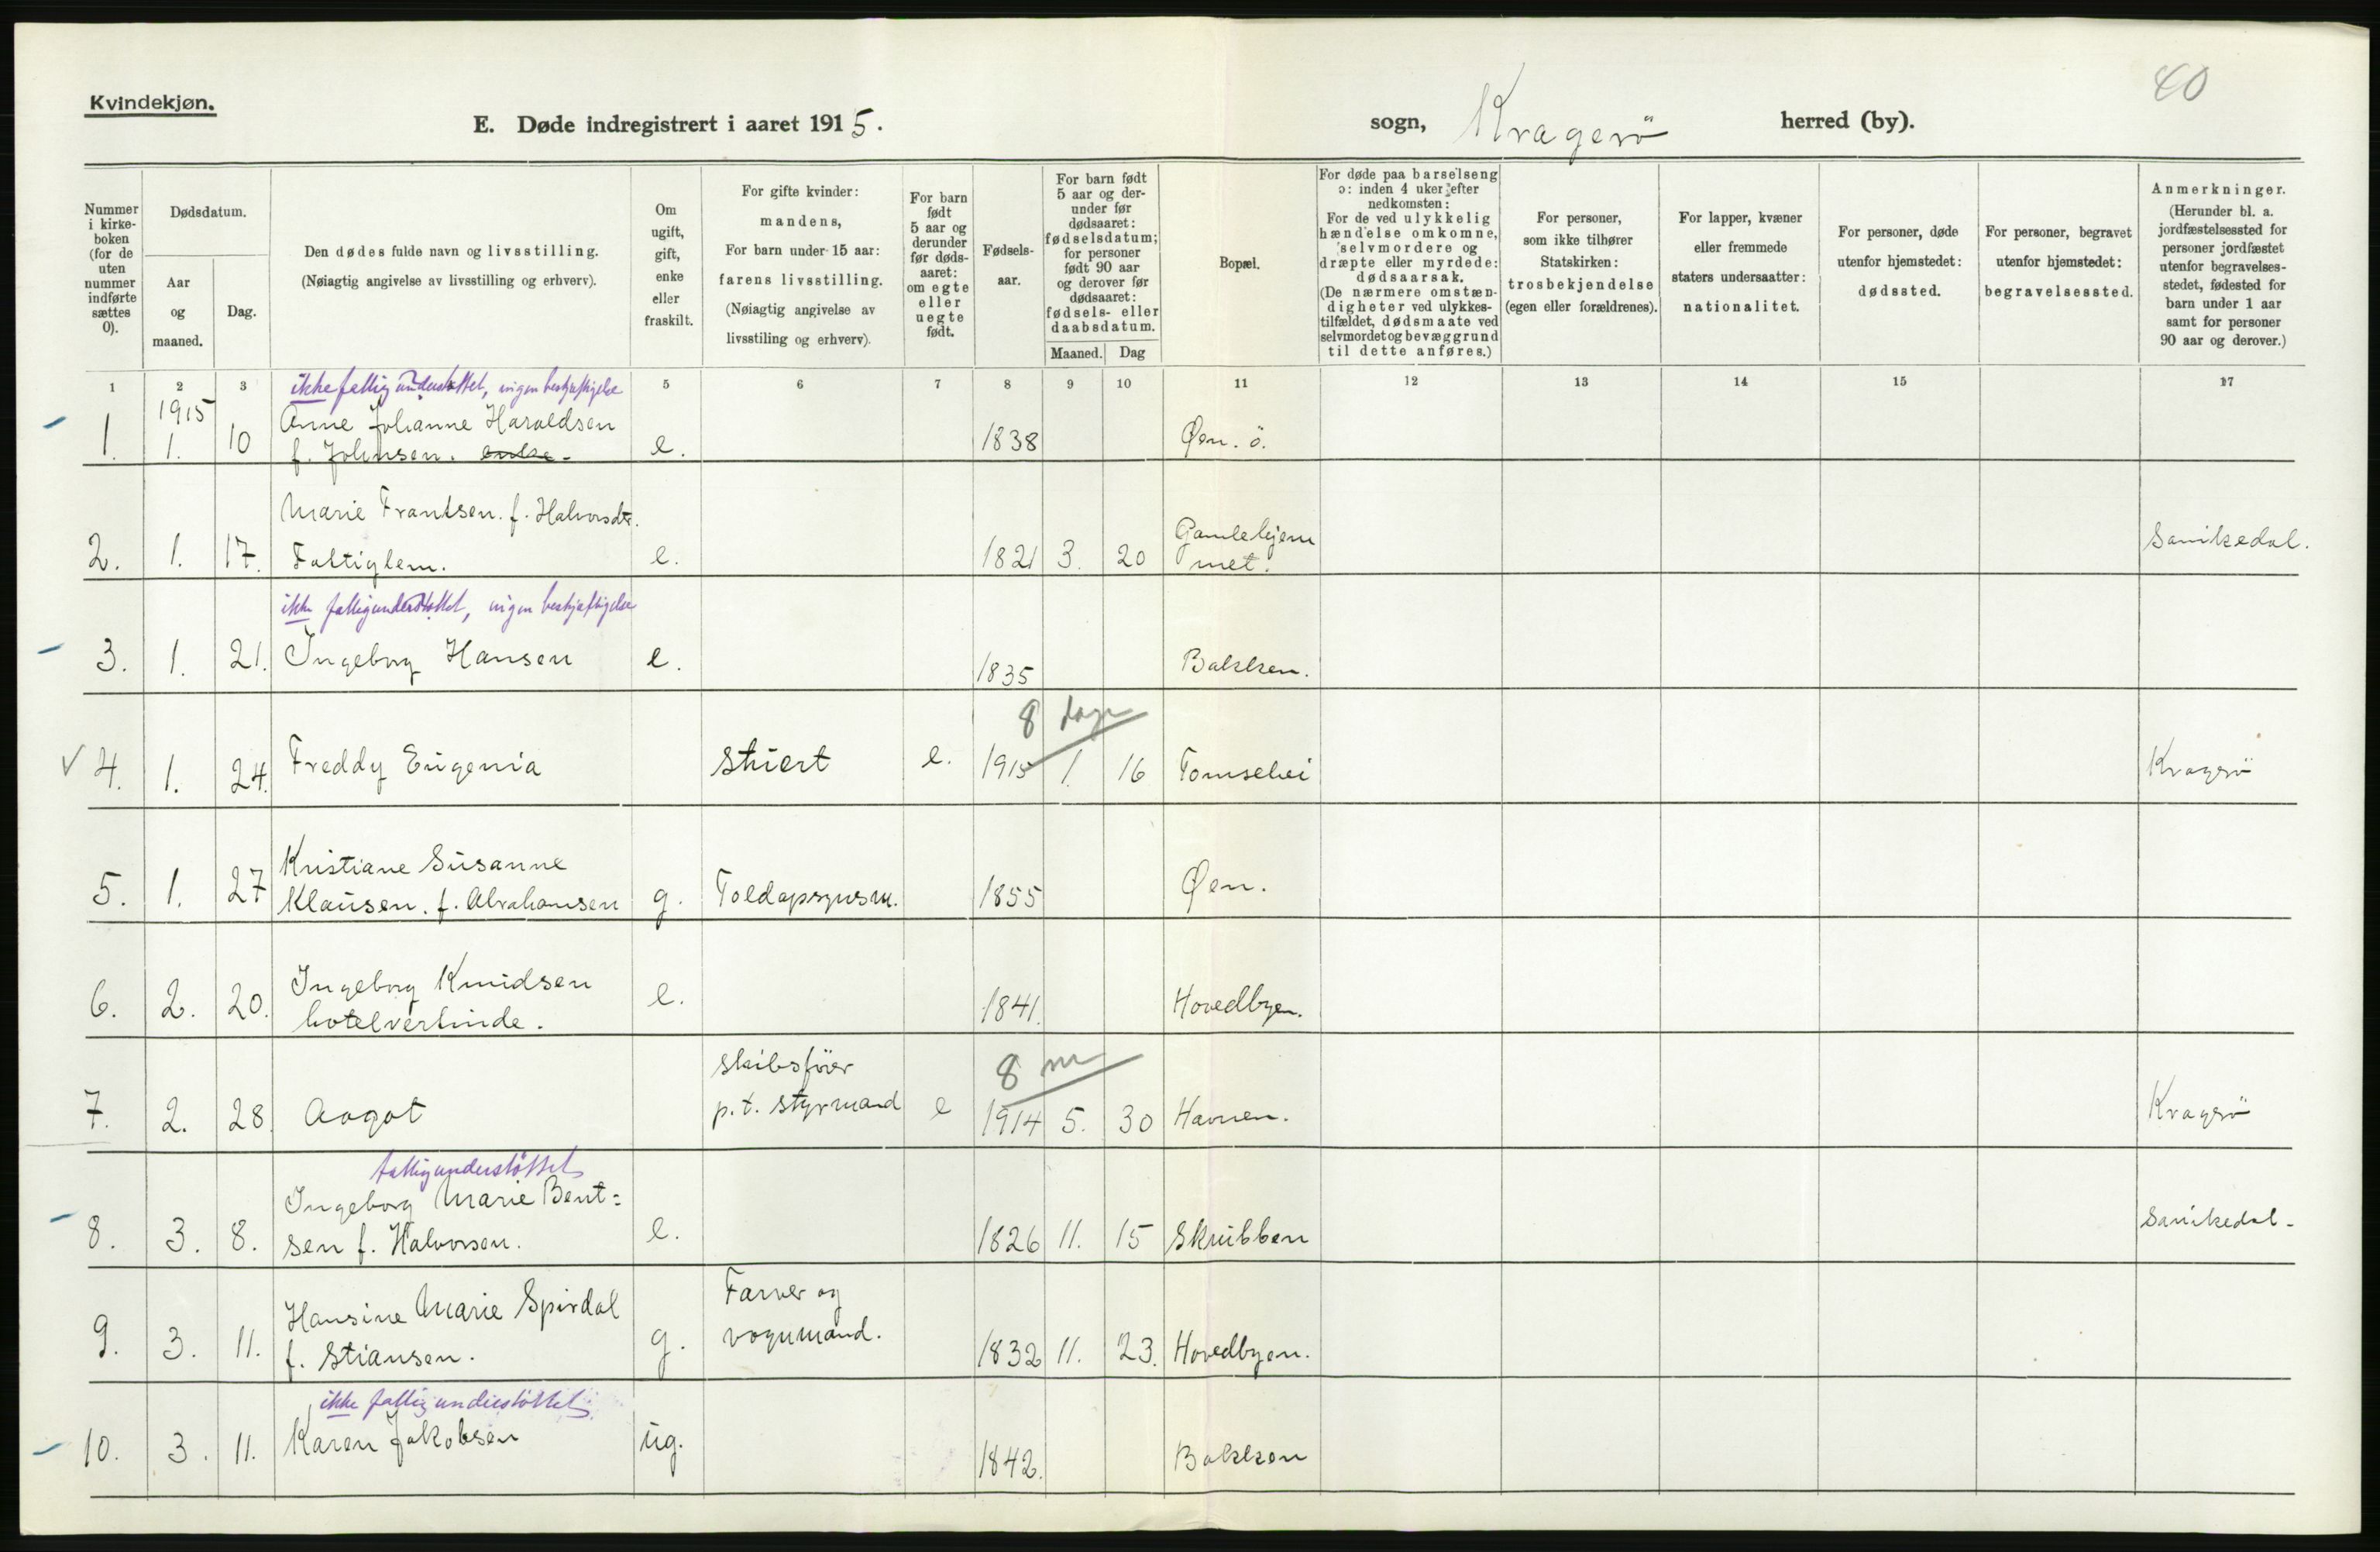 Kvindekjøn.
E. Døde indregistrert i aaret 1915.
sogn, Kragerö herred (by).
40
Nummer i kirkeboken (for de uten nummer indførte sættes 0).
Dødsdatum.
Aar og maaned.
Dag.
Den dødes fulde navn og livsstilling.
(Nøiagtig angivelse av livsstilling og erhverv).
Om ugift, gift, enke eller fraskilt.
For gifte kvinder: mandens,
For barn under 15 aar: farens livsstilling.
(Nøiagtig angivelse av livsstiling og erhverv).
For barn født 5 aar og derunder før dødsaaret: om egte eller uegte født.
Fødselsaar.
For barn født 5 aar og derunder før dødsaaret: fødselsdatum; for personer født 90 aar og derover før dødsaaret: fødsels- eller daabsdatum.
Maaned. Dag
Bopæl.
For døde paa barselseng ɔ: inden 4 uker efter nedkomsten:
For de ved ulykkelig hændelse omkomne, selvmordere og dræpte eller myrdede: dødsaarsak.
(De nærmere omstændigheter ved ulykkestilfældet, dødsmaate ved selvmordet og bevæggrund til dette anføres.)
For personer, som ikke tilhører Statskirken: trosbekjendelse (egen eller forældrenes).
For lapper, kvæner eller fremmede staters undersaatter: nationalitet.
For personer, døde utenfor hjemstedet: dødssted.
For personer, begravet utenfor hjemstedet: begravelsessted.
Anmerkninger.
(Herunder bl. a. jordfæstelsessted for personer jordfæstet utenfor begravelsesstedet, fødested for barn under 1 aar samt for personer 90 aar og derover.)
1 2 3 5 6 7 8 9 10 11 12 13 14 15 17
ikke fattigunderstøttet, ingen beskjæftigelse
1915
Anne Johanne Haraldsen
1. 1. 10 f. Johnsen. enke - e. 1838 Øen. ö.
Marie Frantsen. f. Halvorsdtr.
2. 1. 17. Fattiglem. e. 1821 3. 20 Gamlehjem
met. Sanikedal.
ikke fattigunderstøttet, ingen beskjæftigelse
3. 1. 21. Ingeborg Hansen e. 1835 Bakken.
8 dage
4. 1. 24. Freddy Eugenia Stuert e. 1915 1. 16 Tomsehei Kragerö
Kristiane Susanne
5. 1. 27 Klausen. f. Abrahamsen g. Toldopsynsm. 1855 Øen.
Ingeborg Knudsen
6. 2. 20. hotelvertinde. e. 1841. Hovedbyen.
skibsförer
8 m
7. 2. 28. Aagot p.t. styrmand e 1914 5. 30 Havnen. Kragerö
fattigunderstøttet
Ingeborg Marie Bent=
8. 3. 8. sen f. Halvorsen. e. 1826 11. 15 Skrubben Sanikedal-
Hansine Marie Spirdal Farver og
9. 3. 11. f. Stiansen. g. vognmand. 1832 11. 23. Hovedbyen.
ikke fattigunderstøttet
10. 3. 11. Karen Jakobsen ug. 1842. Bakken